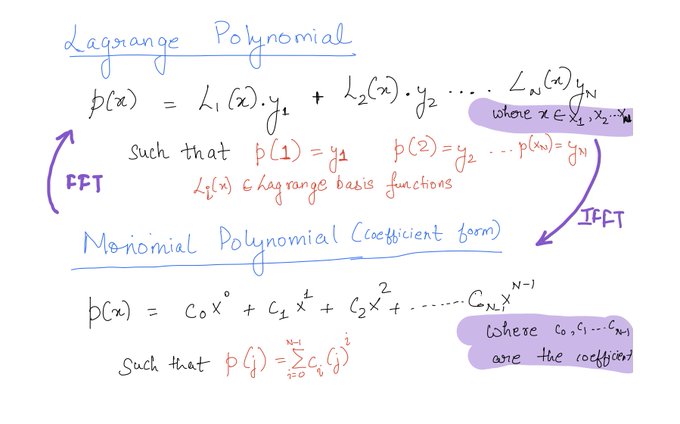 Lagrange Polynomial
p(x) = L₁(x).y₁ + L₂(x).y₂ .... L_N(x)y_N
where x ∈ x₁, x₂...x_N
such that p(1) = y₁ p(2) = y₂ ... p(x_N) = y_N
L_i(x) ∈ Lagrange basis functions
FFT
IFFT
Monomial Polynomial (coefficient form)
p(x) = c₀x⁰ + c₁x¹ + c₂x² + ....... C_{N-1}x^{N-1}
where c₀, c₁ ... C_{N-1}
are the coefficient
Such that p(j) = ∑_{i=0}^{N-1} c_i(j)^i